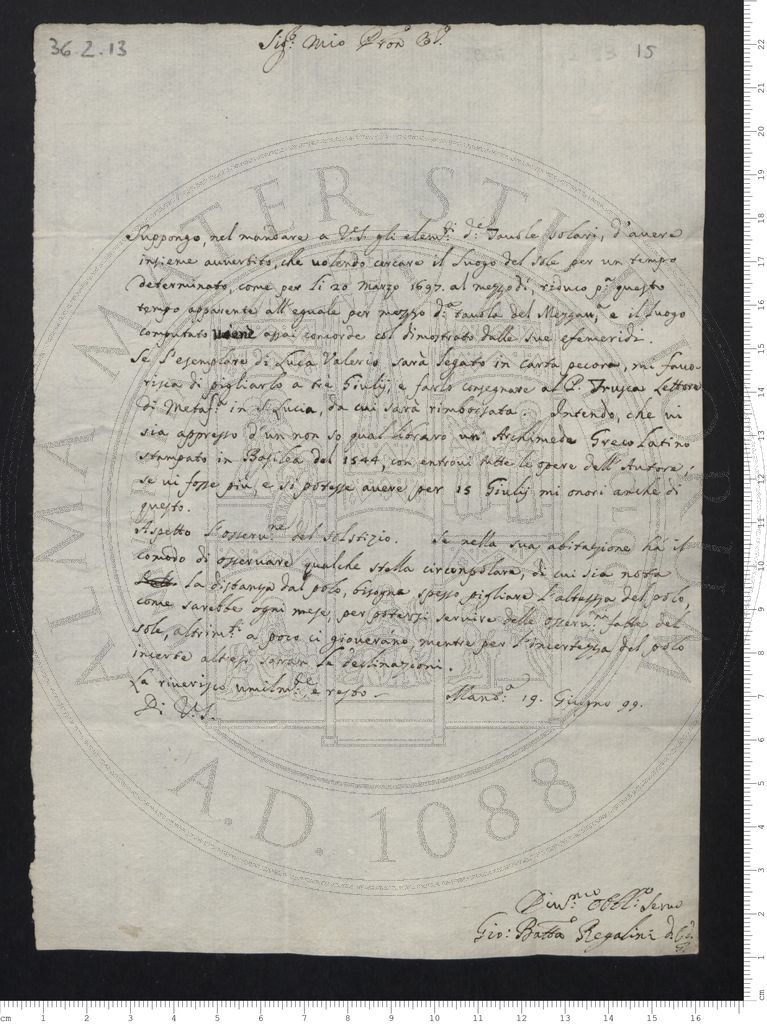 36.2.13
15
Sig.r mio P'ron Col.o
Suppongo, nel mandare a V.S. gli elem.ti d.e Tavole solari, d'avere
insieme avvertito, che volendo cercare il luogo del sole per un tempo
determinato, come per li 20 Marzo 1697. al mezzodì, riduco p.a questo
tempo apparente all'eguale per mezzo d.a tavola del Mezzav.a e il luogo
computato viene assai concorde col dimostrato dalle sue efemeridi.
Se l'esemplare di Luca Valerio sarà legato in carta pecora, mi favo-
risca di pigliarlo a tre Giulij, e farlo consegnare al P. Trusca Lettore
di Metaf.a in S. Lucia, da cui sarà rimborsata. Intendo, che vi
sia appresso d'un non so qual libraro un Archimede Greco Latino
stampato in Basilea del 1544, con entrovi tutte le opere dell'Autore;
se vi fosse più, e si potesse avere per 15 Giulij mi onori anche di
questo.
Aspetto l'osserv.ne del solstizio. Se nella sua abitazione hà il
comodo di osservare qualche stella circonpolare, di cui sia nota
la distanza dal polo, bisogna spesso pigliare l'altezza del polo,
come sarebbe ogni mese, per potersi servire delle osserv.ni fatte del
sole, altrim.ti a poco ci gioveranno mentre per l'incertezza del polo
incerte altresì saran le declinazioni.
La riverisco umilm.te e resto - Mant.a 19. Giugno 99.
Di V.S.
Div.mo Obbl.o Servo
Gio: Batta Regalini
ALMA MATER STUDIORUM
A.D. 1088